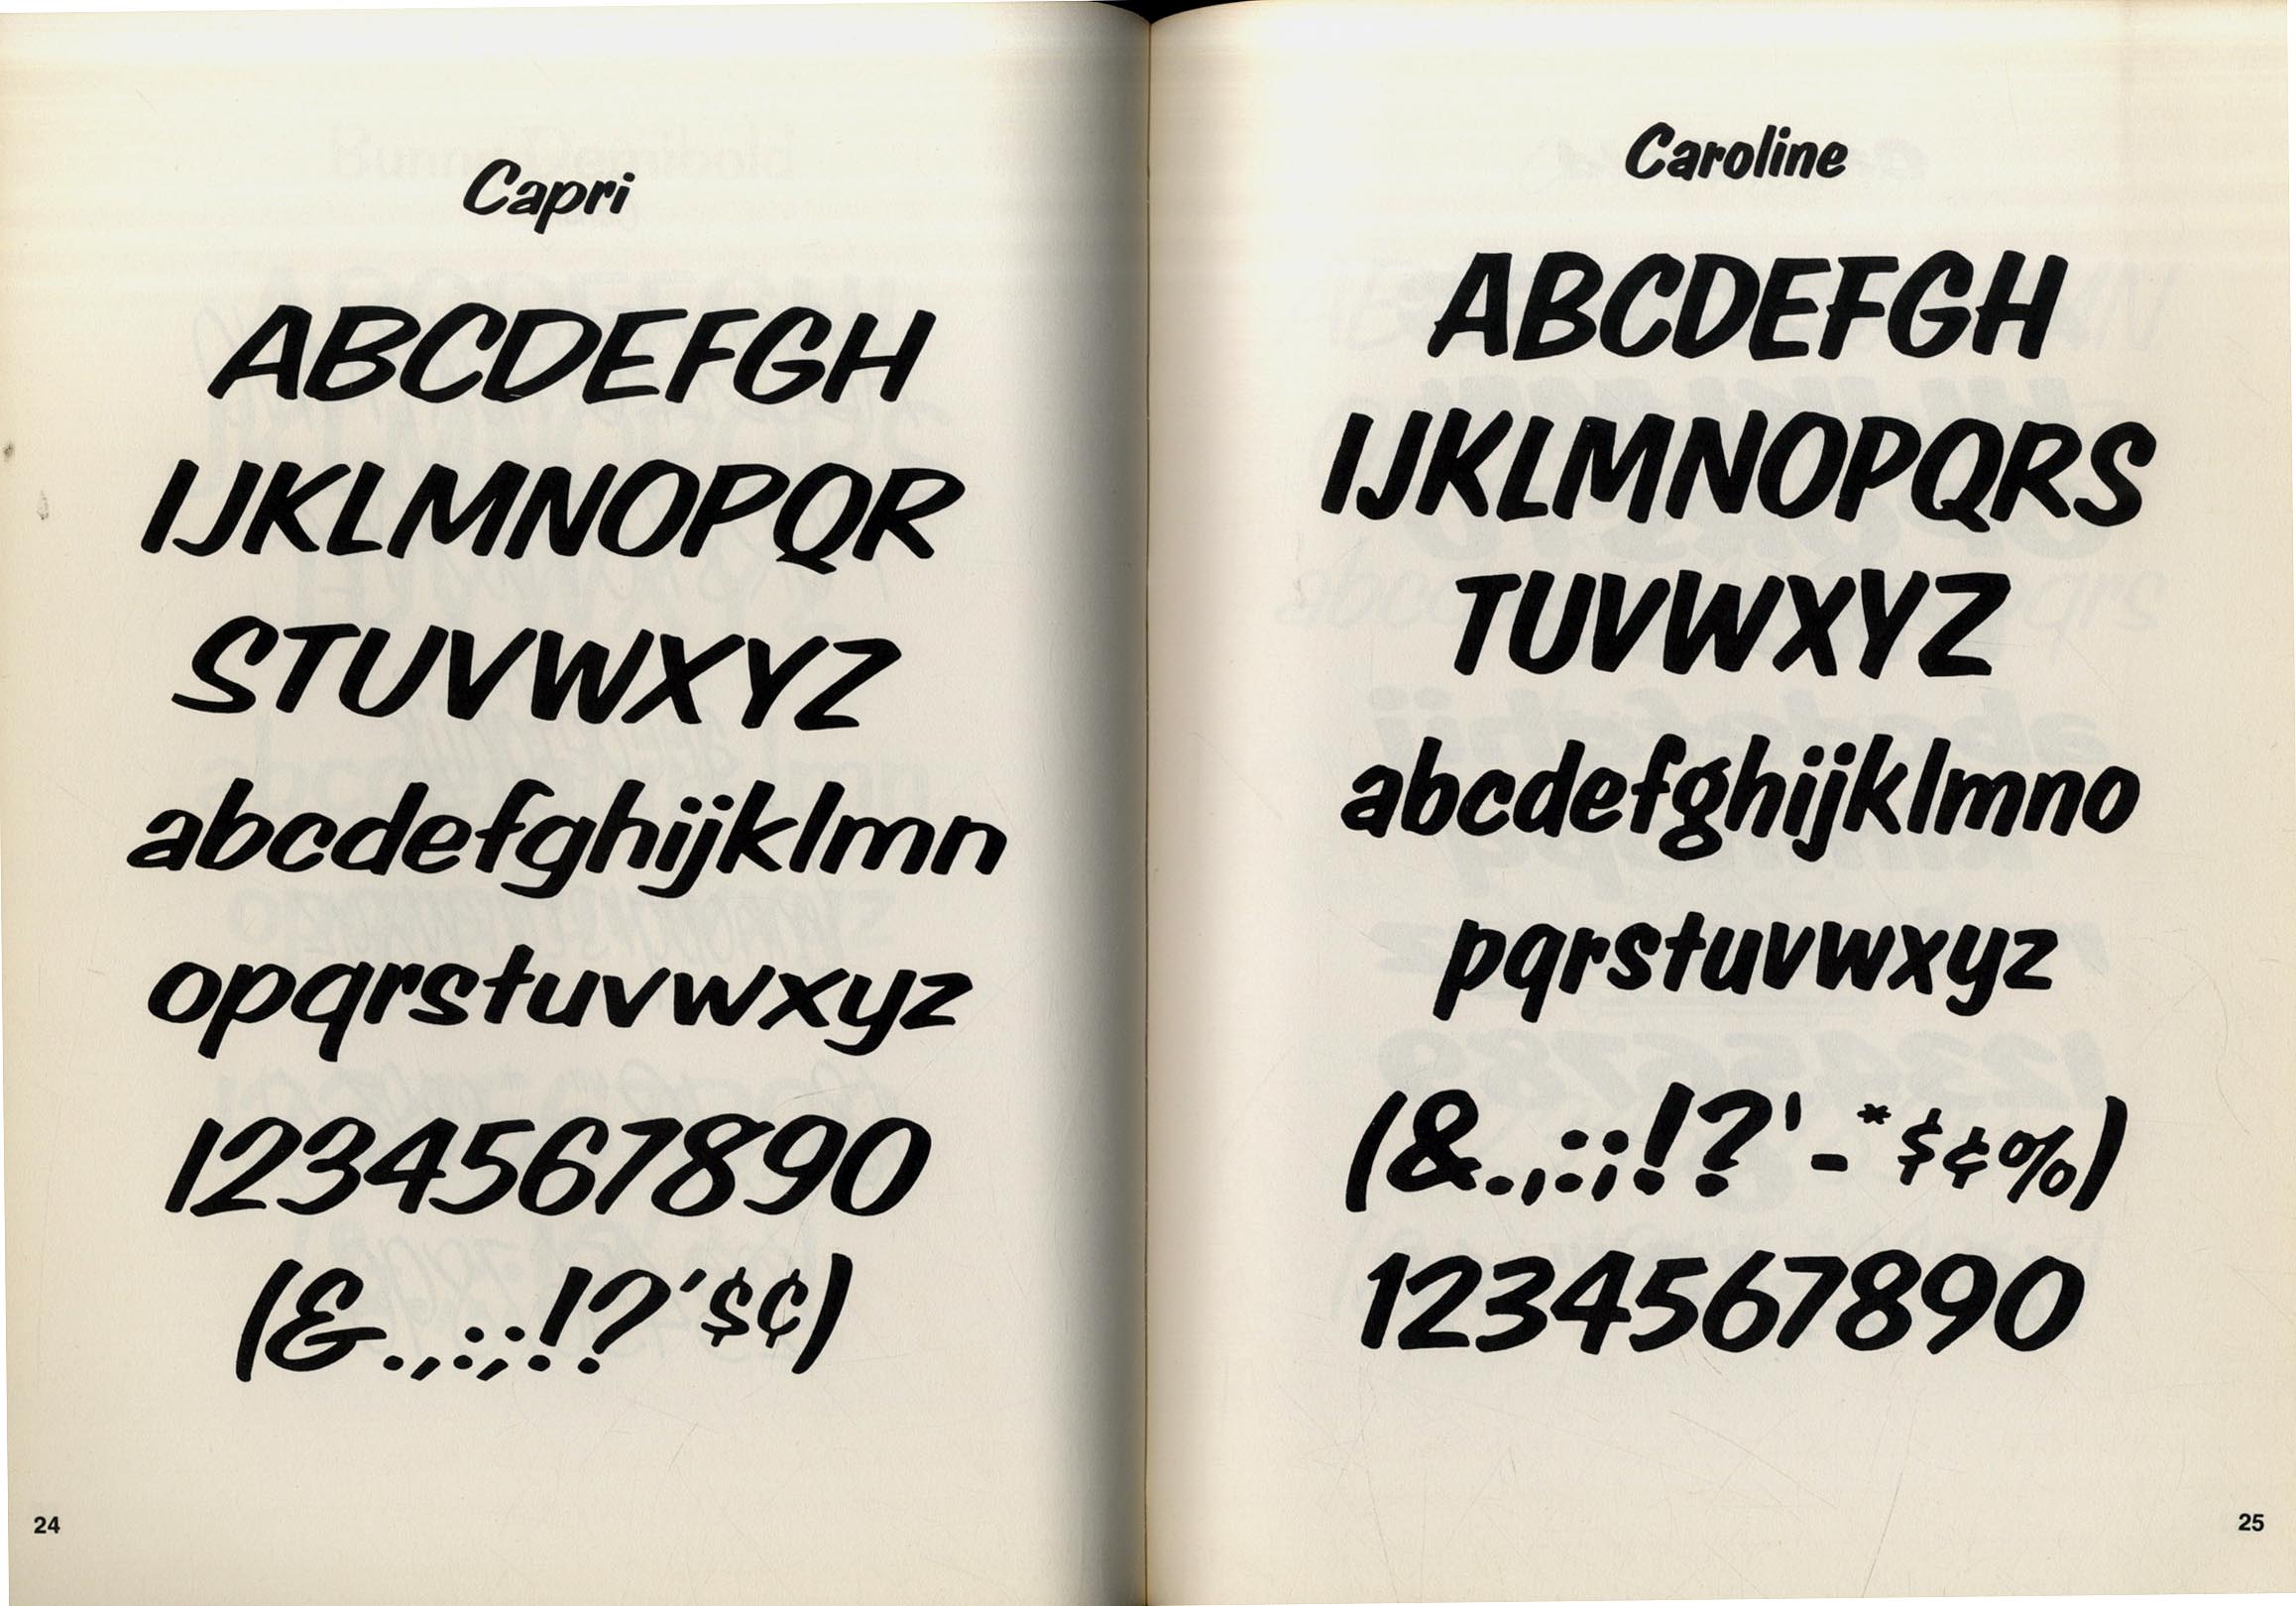 Capri
ABCDEFGH
IJKLMNOPQR
STUVWXYZ
abcdefghijklmn
opqrstuvwxyz
1234567890
(&.,:;!?'$¢)
24
Caroline
ABCDEFGH
IJKLMNOPQRS
TUVWXYZ
abcdefghijklmno
pqrstuvwxyz
(&.,:;!?'-*$¢%)
1234567890
25